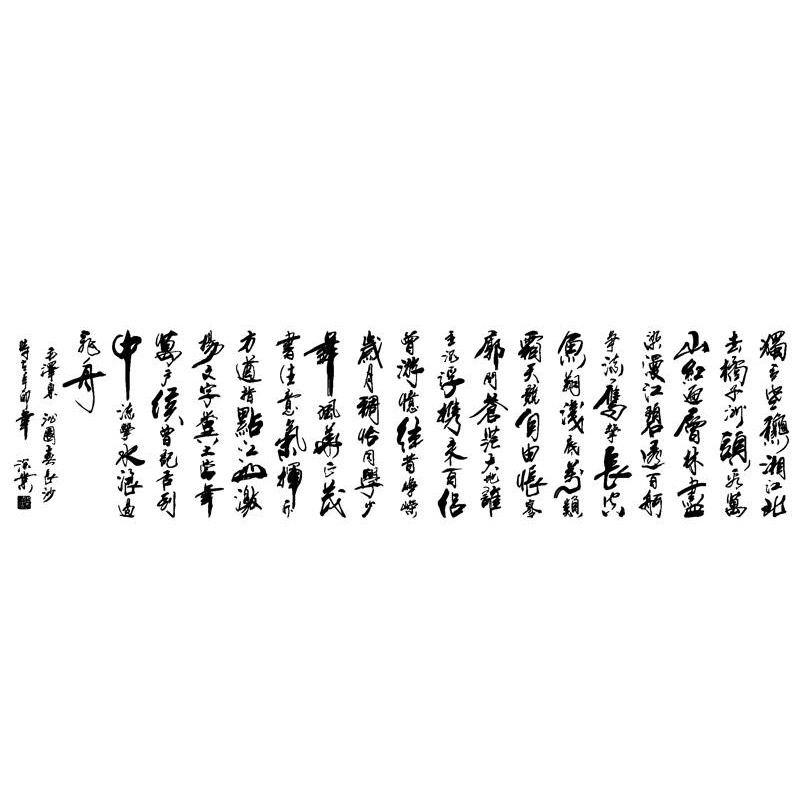 獨立寒秋湘江北
去橘子洲頭看萬
山紅遍層林盡
染漫江碧透百舸
爭流鷹擊長空
魚翔淺底萬類
霜天競自由悵寥
廓問蒼茫大地誰
主沉浮攜來百侶
曾游憶往昔崢嶸
歲月稠恰同學少
年風華正茂
書生意氣揮斥
方遒指點江山激
揚文字糞土當年
萬戶侯曾記否到
中流擊水浪遏
飛舟
毛澤東 沁園春長沙
時卯年